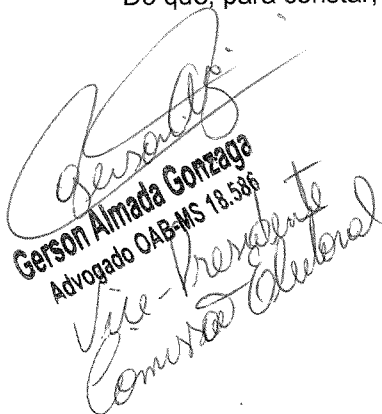 De que, para constar,
Gerson Almada Gonzaga
Advogado OAB-MS 18.586
Vice-Presidente
Comissão Eleitoral